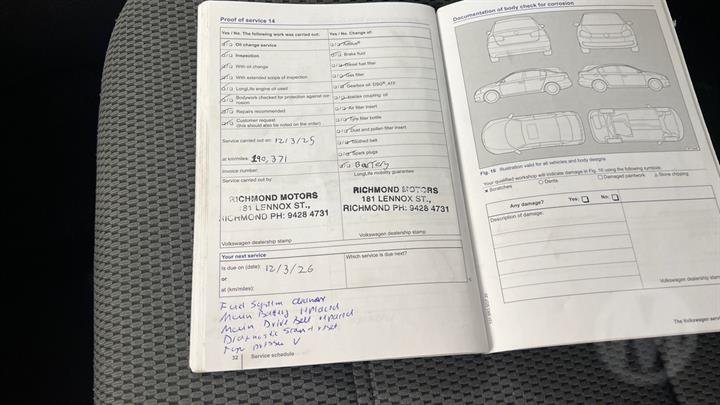 Proof of service 14
Yes / No. The following work was carried out:
Oil change service
Inspection
With oil change
With extended scope of inspection
LongLife engine oil used
Bodywork checked for protection against corrosion
Repairs recommended
Customer request
(this should also be noted on the order)
Service carried out on: 12/3/25
at km/miles: 190,371
Invoice number:
Service carried out by
RICHMOND MOTORS
181 LENNOX ST.,
RICHMOND PH: 9428 4731
Volkswagen dealership stamp
Yes / No. Change of:
Brake fluid
Diesel fuel filter
Gas filter
Gearbox oil: DSG®, ATF
Haldex coupling oil
Air filter insert
Tyre filler bottle
Dust and pollen filter insert
Toothed belt
Spark plugs
Battery
LongLife mobility guarantee
RICHMOND MOTORS
181 LENNOX ST.,
RICHMOND PH: 9428 4731
Volkswagen dealership stamp
Your next service
Is due on (date): 12/3/26
or
at (km/miles):
Which service is due next?
Fuel System cleaner
Main Battery replaced
Main Drive Belt replaced
Diagnostic Scan + reset
32 Service schedule
Documentation of body check for corrosion
Fig. 16 Illustration valid for all vehicles and body designs
Your qualified workshop will indicate damage in Fig. 16 using the following symbols:
Scratches
Dents
Damaged paintwork
Stone chipping
Any damage? Yes: No:
Description of damage:
Volkswagen dealership stam
The Volkswagen serv